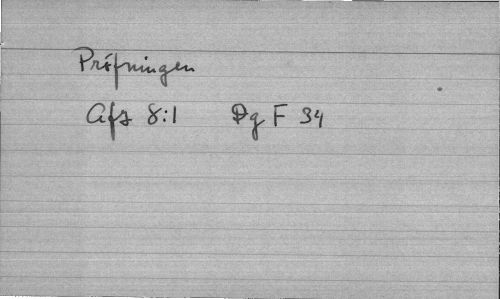 Pröfningen
Afz 8:1 Dg F 34